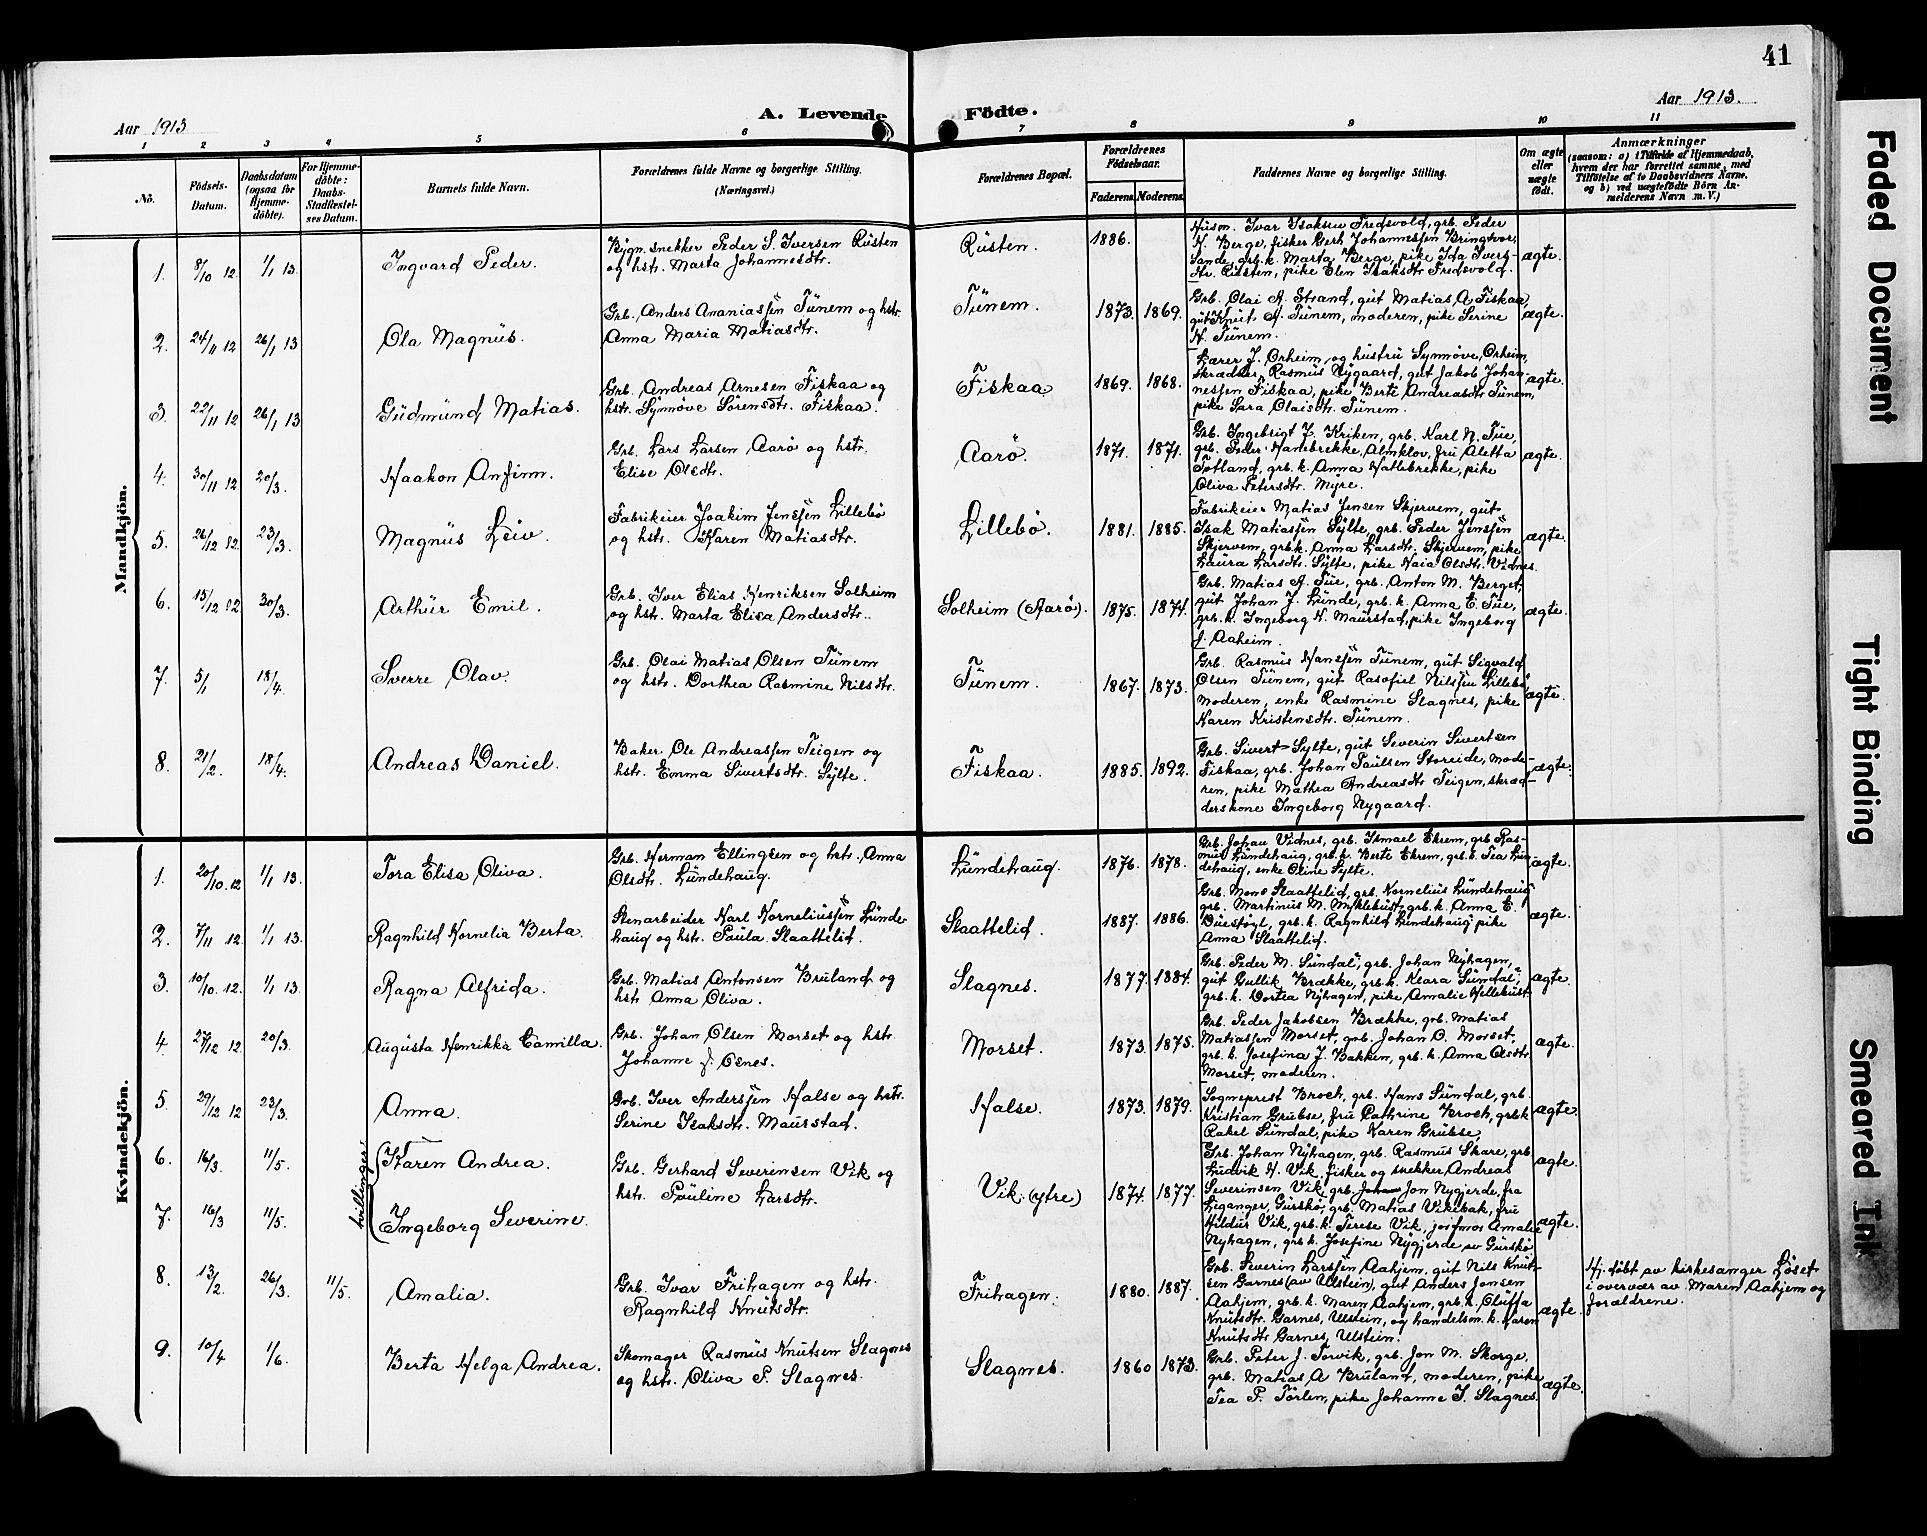 41
Aar 1913
A. Levende
Födte.
Aar 1913.
1 2 3 4 5 6 7 8 9 10 11
No.
Födsels-
Datum.
Daabsdatum
(ogsaa for
Hjemme-
döbte).
For Hjemme-
döbte:
Daabs-
Stadfæstel-
ses Datum.
Barnets fulde Navn.
Forældrenes fulde Navne og borgerlige Stilling.
(Næringsvei.)
Forældrenes Bopæl.
Forældrenes
Födselsaar.
Faderens. Moderens.
Faddernes Navne og borgerlige Stilling.
Om ægte
eller
uægte
födt.
Anmærkninger
(saasom: a) i Tilfælde af Hjemmedaab,
hvem der har forrettet samme, med
Tilföielse af to Daabsvidners Navne,
og b) ved uægtefödte Börn An-
melderens Navn m. V.)
Mandkjön.
1. 8/10 12 1/1 13. Ingvard Peder.
Bygn. snekker Peder S. Iversen Rüsten
og hstr. Marta Johannesdtr.
Rüsten. 1886.
Hüsm. Ivar Isaksen Fredsvold, grb. Peder
H. Berge, fisker Gerh. Johannessen Bringsvor,
Sande, grb.k. Marta Berge, pike Ida Ivers-
dtr. Rüsten, pike Elen Isaksdtr. Fredsvold.
ægte.
2. 24/11 12 26/1 13 Ola Magnüs.
Grb. Anders Ananiassen Tünem og hstr.
Anna Maria Matiasdtr.
Tünem. 1873. 1869.
Grb. Olai A. Strand, güt Matias A. Fiskaa,
güt Knüt A. Tünem, moderen, pike Serine
N. Tünem.
ægte.
3. 22/11 12 26/1 13 Güdmünd Matias.
Grb. Andreas Arnesen Fiskaa og
hstr. Synnöve Sörensdtr. Fiskaa.
Fiskaa 1869. 1868.
Lærer J. Orheim og hüstrü Synnöve Orheim,
skrædder Rasmüs Nygaard, güt Jakob Johan-
nessen Fiskaa, pike Berte Andreasdtr Tünem,
pike Sara Olaisdtr. Tünem.
ægte.
4. 30/11 12 20/3. Haakon Anfinn.
Grb. Lars Larsen Aarö og hstr.
Elise Olsdtr.
Aarö. 1871. 1871.
Grb. Ingebrigt J. Kriken, grb. Karl N. Tüe,
grb. Peder Hanebrekke, Almklov, frü Aletta
Totland, grb. k. Anna Hatlebrekke, pike
Oliva Petersdtr. Myre.
ægte.
5. 26/12 12. 23/3. Magnüs Leiv.
Fabrikeier Joakim Jenssen Lillebö
og hstr. Karen Matiasdtr.
Lillebö. 1881. 1885.
Fabrikeier Matias Jensen Skjervem, güt
Isak Matiassen Sylte, grb. Peder Jenssen
Skjervem, grb.k. Anna Larsdtr. Skjervem, pike
Laura Larsdtr. Sylte, pike Kaia Olsdtr. Vidnes.
ægte.
6. 15/12 12 30/3. Arthür Emil.
Grb. Iver Elias Henriksen Solheim
og hstr. Marta Elisa Andersdtr.
Solheim (Aarö). 1875. 1874.
Grb. Matias A. Tüe, grb. Anton M. Berget,
güt Johan J. Lünde, grb. k. Anna E. Tüe,
grb. k. Ingeborg N. Maürstad, pike Ingeborg
J. Aaheim.
ægte.
7. 5/1 18/4. Sverre Olav.
Grb. Olai Matias Olsen Tünem
og hstr. Dorthea Rasmine Nilsdtr.
Tünem. 1867. 1873.
Grb. Rasmüs Hanssen Tünem, güt Sigvald
Olsen Tünem, güt Rasofiel Nilssen Lillebö,
moderen, enke Rasmine Slagnes, pike
Karen Kristensdtr. Tünem.
ægte.
8. 21/2. 18/4. Andreas Daniel.
Baker Ole Andreassen Teigen og
hstr. Emma Sivertsdtr. Sylte.
Fiskaa. 1885. 1892.
Grb. Sivert Sylte, güt Severin Sivertsen
Fiskaa, grb. Johan Paülsen Storeide, mode-
ren, pike Mathea Andreasdtr Teigen, skræd-
derskone Ingeborg Nygaard.
ægte.
Kvindekjön.
1. 20/10. 12 1/1 13. Tora Elisa Oliva.
Grb. Herman Ellingsen og hstr. Anna
Olsdtr. Lündehaug.
Lündehaug. 1876. 1878.
Grb. Johan Vidnes, grb. Ismael Ekrem, grb. Ras-
müs Lündehaug, grb.k. Berte Ekrem, grb.k. Tea Lün-
dehaug, enke Oline Sylte.
ægte.
2. 7/11 12. 1/1 13. Ragnhild Kornelia Berta.
Stenarbeider Karl Korneliussen Lünde-
haug og hstr. Paüla Slaattelid.
Slaattelid. 1887. 1886.
Grb. Mons Slaattelid, grb. Kornelius Lündehaug
grb. Martinus M. Myklebust, grb. k. Anna E.
grb. k. Ragnhild Lündehaug pike
Anna Slaattelid.
ægte.
3. 10/10. 12. 1/1 13. Ragna Alfrida.
Grb. Matias Antonsen Bruland og
hstr Anna Oliva.
Slagnes. 1877. 1884.
Grb. Peder M. Sündal, grb. Johan Nyhagen,
güt Gullik Brække, grb.k. Klara Sündal,
grb. k. Dortea Nyhagen, pike Amalie Hellebüst.
ægte.
4. 27/12 12. 20/3. Augüsta Henrikka Camilla.
Grb. Johan Olsen Morset og hstr.
Johanne J. Osnes.
Morset. 1873. 1875.
Grb. Peder Jakobsen Brække, grb. Matias
Matiassen Morset, grb. Johan O. Morset,
grb. k. Josefina J. Bakken, grb. k. Anna Olsdtr
Morset, moderen.
ægte.
5. 29/12 12 23/3. Anna.
Grb. Iver Anderssen Halse og hstr.
Serine Isaksdtr. Maürstad.
Halse. 1873. 1879.
Sogneprest Broch, grb. Hans Sündal, grb.
Kristian Grübse, frü Cathrine Broch, grb.k
Rakel Sündal, pike Karen Grübse.
ægte.
tvillinger.
6. 16/3. 11/5. Karen Andrea.
7. 16/3 11/5. Ingeborg Severine.
Grb. Gerhard Severinsen Vik og
hstr. Paüline Larsdtr.
Vik (ytre) 1874. 1877.
Grb. Johan Nyhagen, grb. Rasmüs Skare, grb
Ludvik H. Vik, fisker og snekker Andreas
Severinsen Vik, grb. Jon Nygjerde, fra
Liganger, Gürskø, grb. Matias Vikebak, frü
Hildür Vik, grb. k. Terese Vik, jordmor Amalie
Nyhagen, grb k. Josefine Nygjerde av Gürskö
ægte.
ægte.
8. 13/2. 26/3. 11/5. Amalia.
Grb. Ivar Frihagen og hstr.
Ragnhild Knütsdtr.
Frihagen. 1880. 1887.
Grb. Severin Larssen Aahjem, güt Nils Knüt-
sen Garnes (av Ulstein), güt Anders Jonsen
Aahjem, grb. k. Maren Aahjem, grb. k. Olüffa
Knütsdtr. Garnes, Ulstein, og handelsm. k. Karen
Knütsdtr Garnes, Ulstein.
ægte.
Hj. döbt av kirkesanger Löset
i overvær av Maren Aahjem og
forældrene.
9. 10/4 1/6. Berta Helga Andrea.
Skomager Rasmüs Knütsen Slagnes
og hstr. Oliva P. Slagnes.
Slagnes. 1860 1873.
Grb. Peter J. Torvik, grb. Jon M. Skorge,
grb. Matias A Brüland, moderen, pike
Tea P. Törlen, pike Johanne J. Slagnes.
ægte.
Faded Document
Tight Binding
Smeared Ink